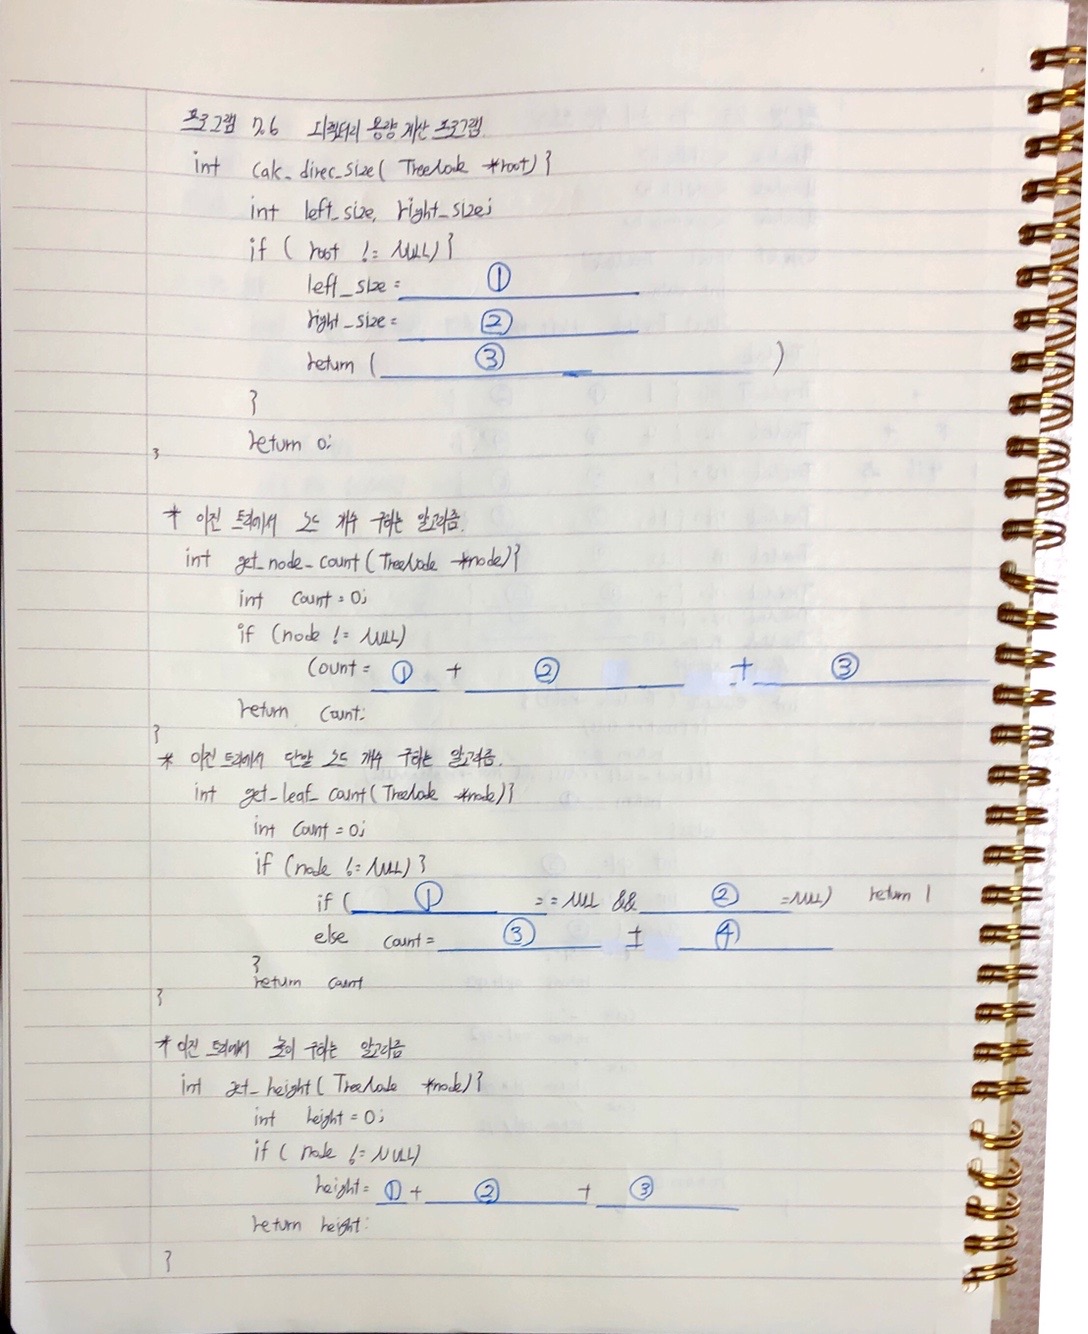 프로그램 7.6 디렉터리 용량 계산 프로그램
int calc_direc_size( TreeNode *root){
int left_size, right_size;
if ( root != NULL){
left_size = ①
right_size = ②
return ( ③ )
}
return 0;
}
* 이진 트리에서 노드 개수 구하는 알고리즘.
int get_node_count(TreeNode *node){
int count = 0;
if (node != NULL)
count = ① + ② + ③
return count;
}
* 이진 트리에서 단말 노드 개수 구하는 알고리즘.
int get_leaf_count(TreeNode *node){
int count = 0;
if (node != NULL){
if ( ① == NULL && ② =NULL) return 1
else count = ③ + ④
}
return count
}
* 이진 트리에서 높이 구하는 알고리즘
int get_height( TreeNode *node){
int height = 0;
if ( node != NULL)
height = ① + ② + ③
return height;
}